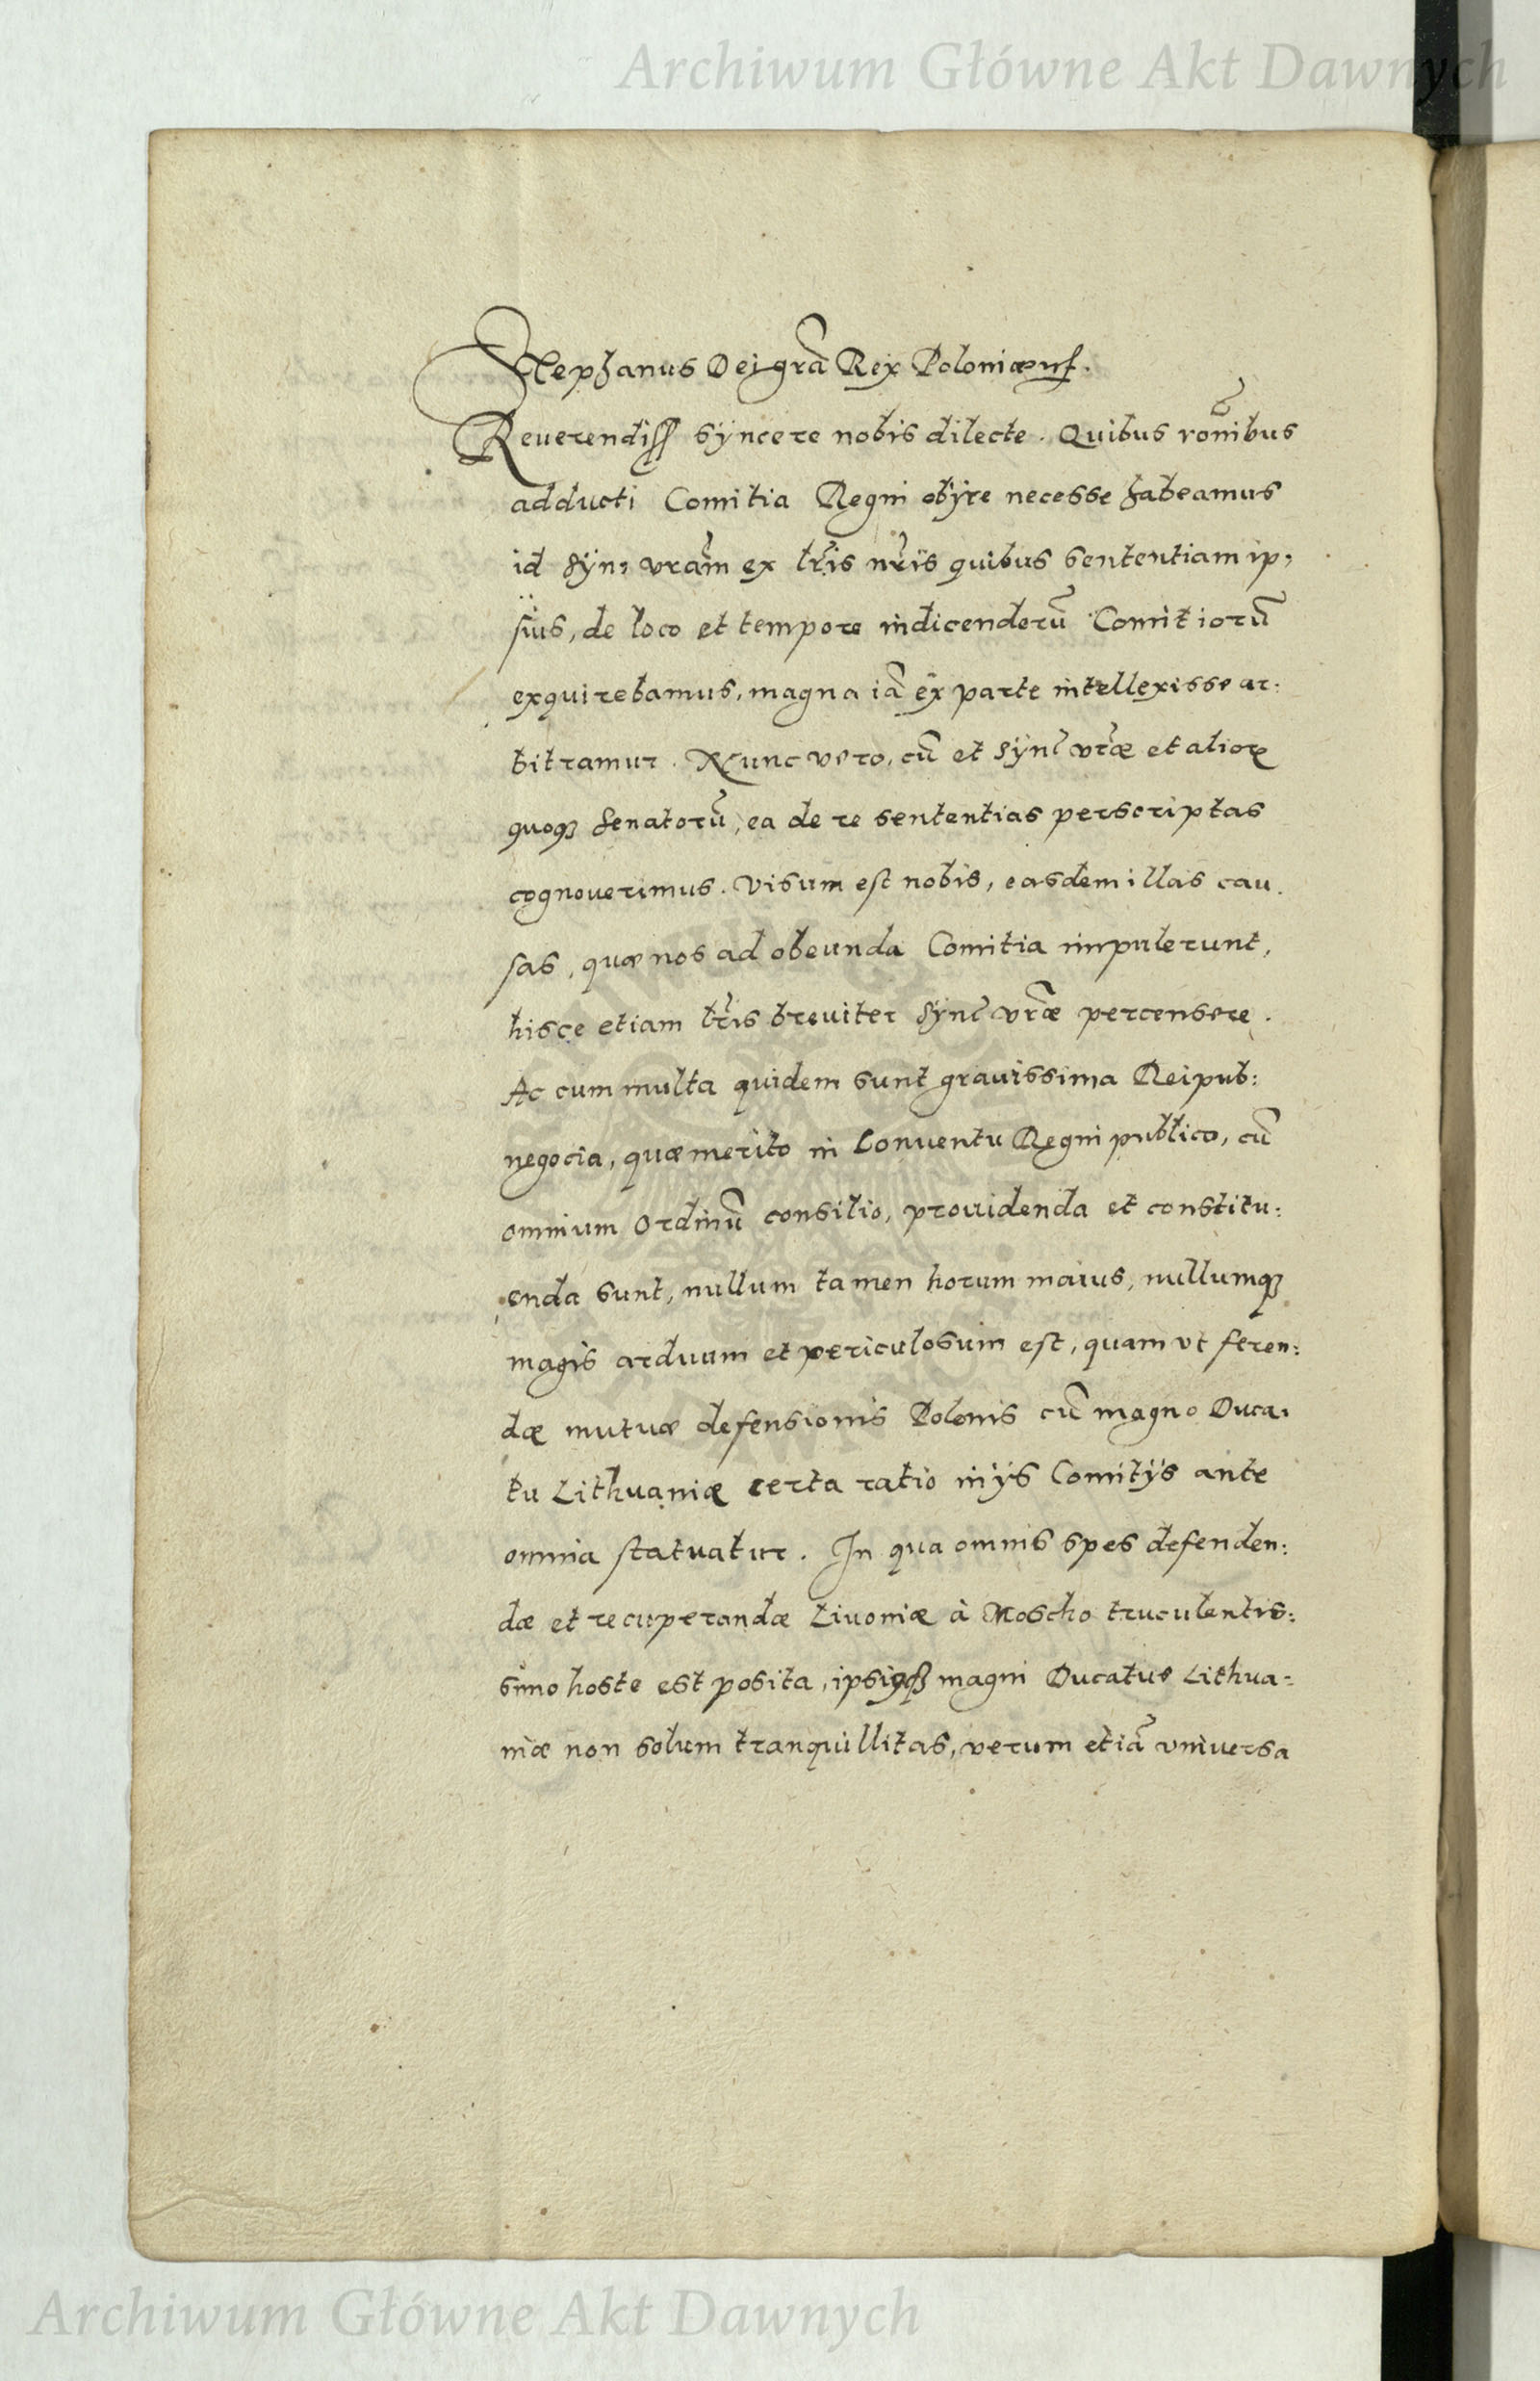 Archiwum Główne Akt Dawnych
Stephanus Dei grã Rex Poloniæ
Reuerendiss syncere nobis dilecte. Quibus rõnibus
adducti Comitia Regni obÿre necesse habeamus
id Syn: vrãm ex lr̃is nr̃is quibus sententiam ip,
sius, de loco et tempore indicenderũ Comitiorũ
exquirebamus, magna iã ex parte intellexisse ar:
bitramur. Nunc vero, cũ et Sync vr̃æ et alioꝝ
quoqꝫ Senatorũ, ea de re sententias perscriptas
cognouerimus. Visum est nobis, easdem illas cau.
sas, quæ nos ad obeunda Comitia impulerunt,
hisce etiam lr̃is breuiter Sync vr̃æ percensere.
Ac cum multa quidem sunt grauissima Reipub:
negocia, quæ merito in Conuentu Regni publico, cũ
omnium Ordinũ consilio, prouidenda et constitu:
enda sunt, nullum tamen horum maius, nullumqꝫ
magis arduum et periculosum est, quam vt feren:
dæ mutuæ defensionis Polonis cũ magno Duca:
tu Lithuaniæ certa ratio in ÿs Comitÿs ante
omnia statuatur. In qua omnis spes defenden:
dæ et recuperandæ Liuoniæ à Moscho truculentis:
simo hoste est posita, ipsiqꝫ magni Ducatus Lithua=
niæ non solum tranquillitas, verum etiã vniuersa
Archiwum Główne Akt Dawnych